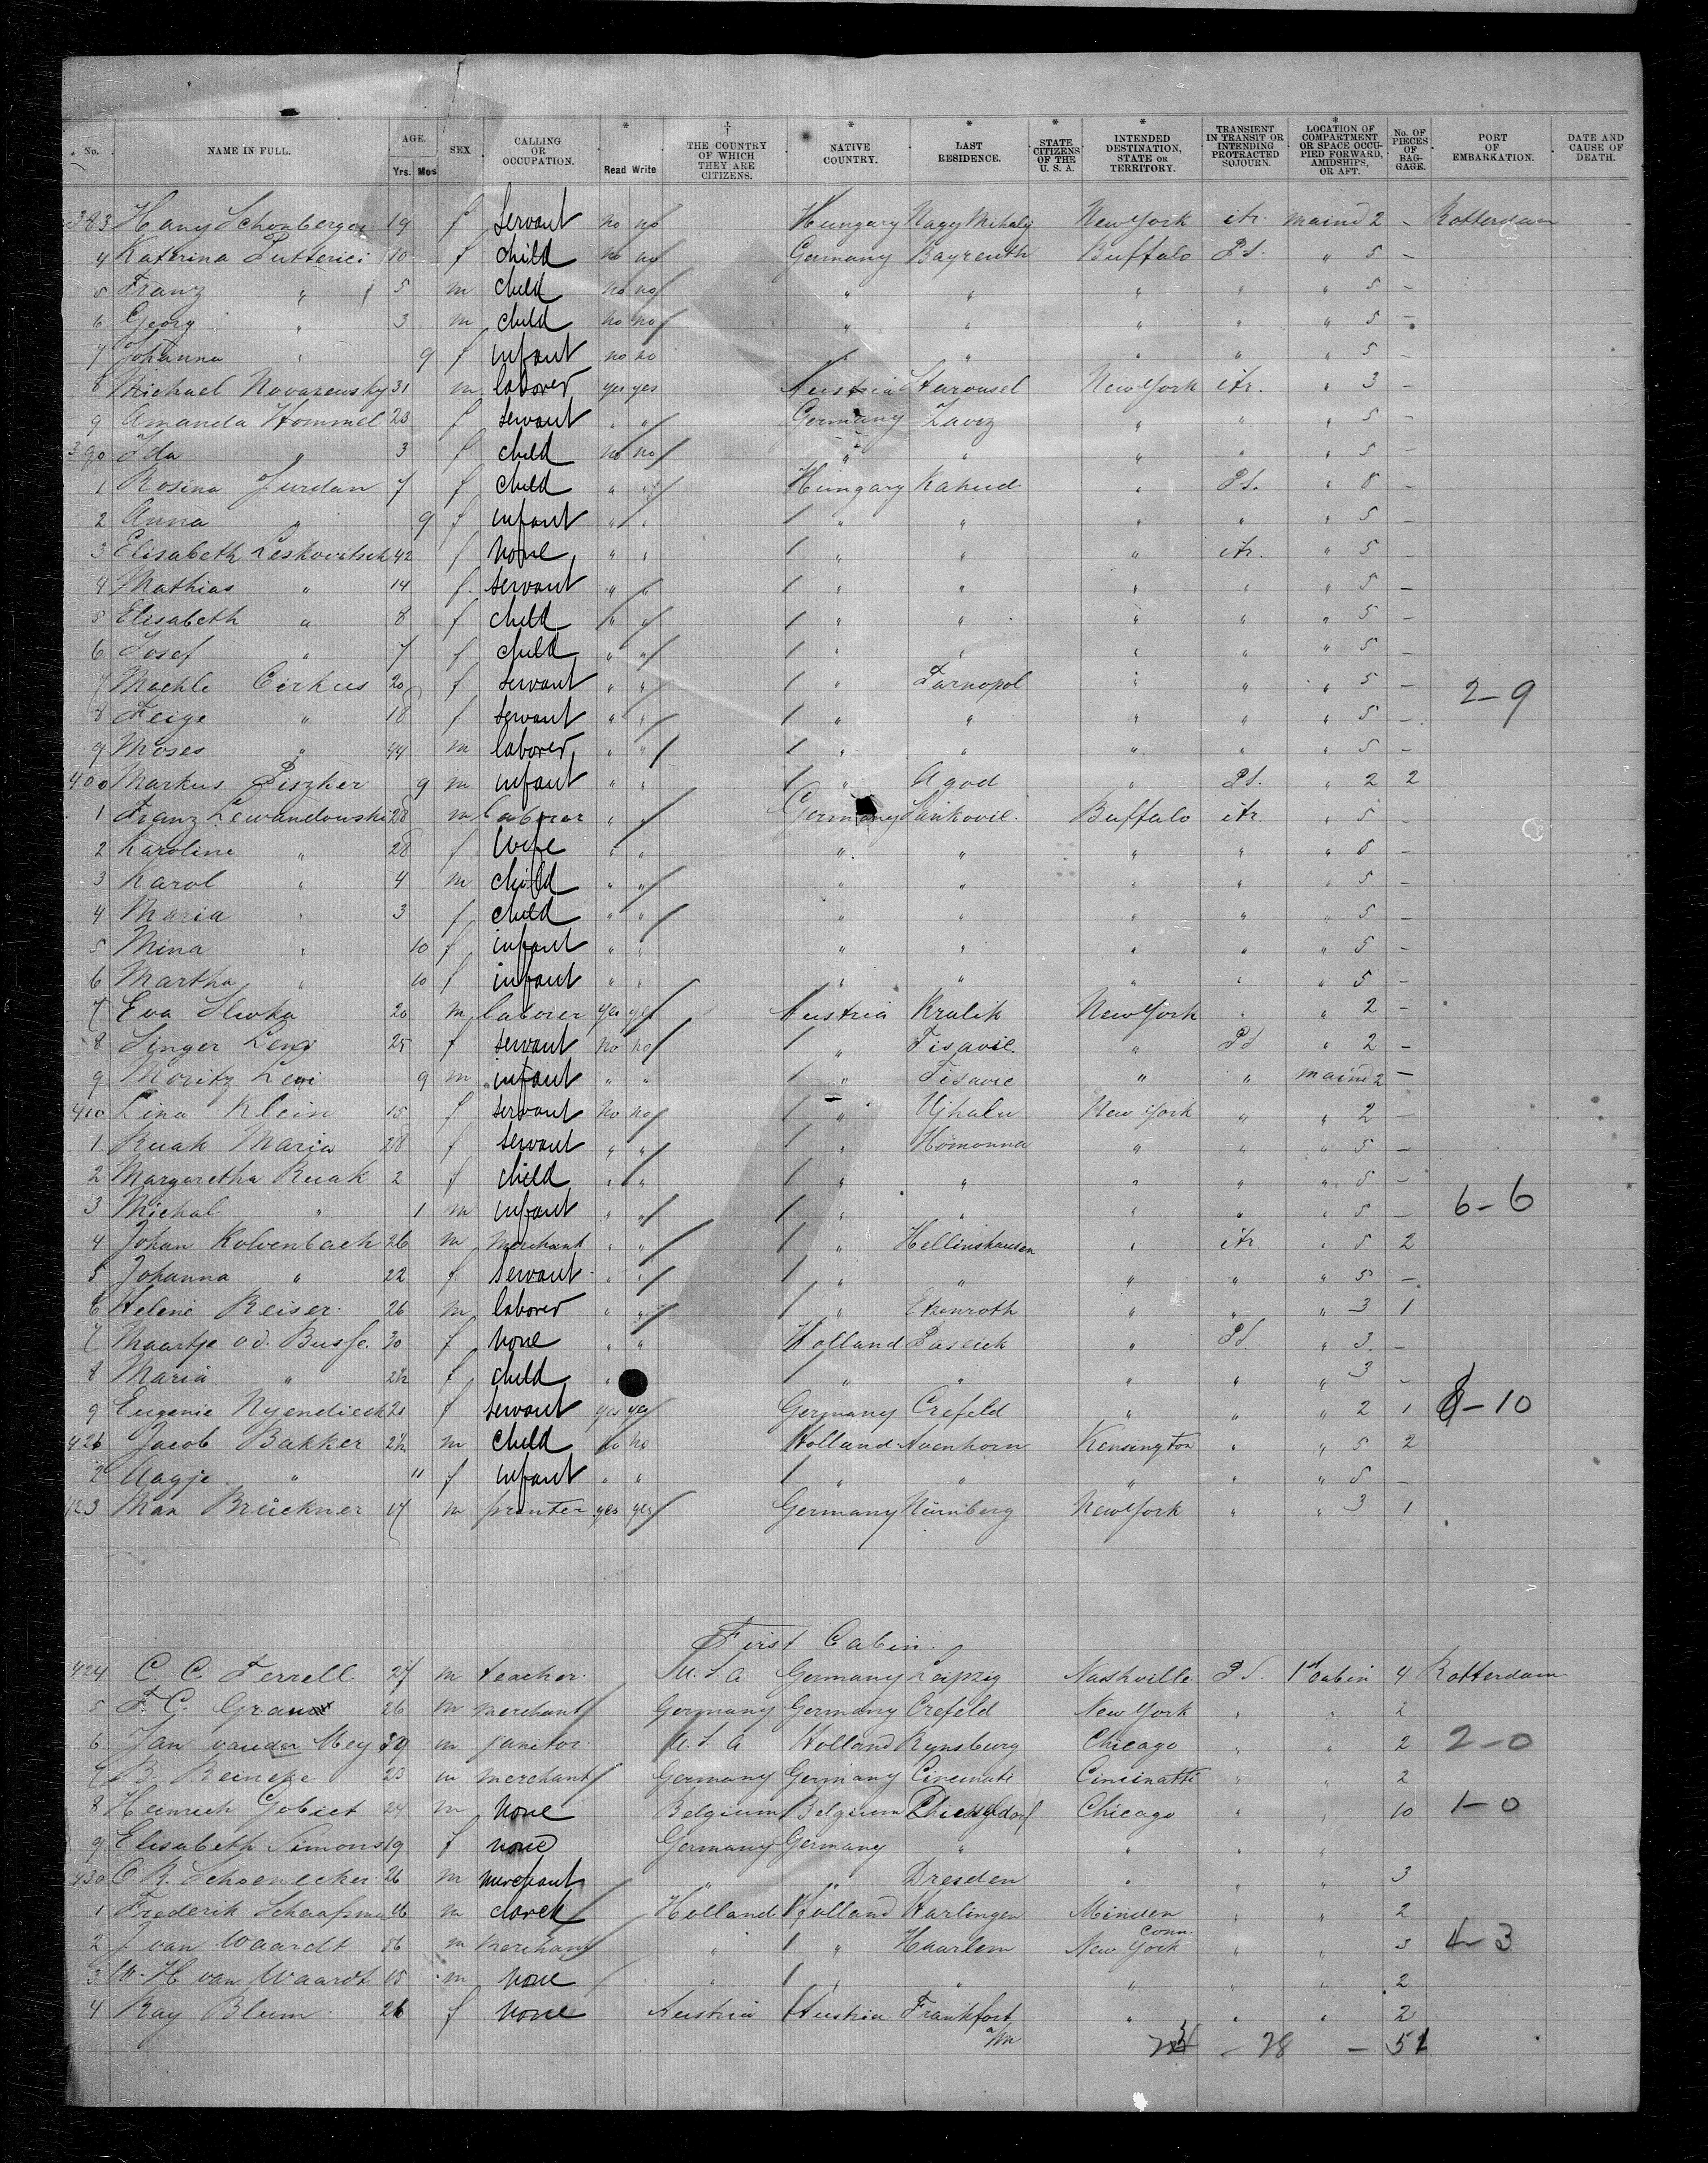 No. NAME IN FULL. AGE. Yrs. Mos SEX CALLING OR OCCUPATION. * Read Write † THE COUNTRY OF WHICH THEY ARE CITIZENS. * NATIVE COUNTRY. * LAST RESIDENCE. * STATE CITIZENS OF THE U. S. A. * INTENDED DESTINATION, STATE OR TERRITORY. TRANSIENT IN TRANSIT OR INTENDING PROTRACTED SOJOURN. * LOCATION OF COMPARTMENT OR SPACE OCCUPIED FORWARD, AMIDSHIPS, OR AFT. No. OF PIECES OF BAGGAGE. PORT OF EMBARKATION. DATE AND CAUSE OF DEATH.
383 Hany Schonberger 19 f servant no no Hungary Nagy Mihaly New York itr. maind 2 - Rotterdam
4 Katerina Putterici 10 f child no no Germany Bayreuth Buffalo P.S. " 5 -
5 Franz " 5 m child no no " " " " " 5 -
6 Georg " 3 m child no no " " " " " 5 -
7 Johanna " 9 f infant no no " " " " " 5 -
8 Michael Novazewsky 31 m laborer yes yes Austria Starousel New York itr. " 3 -
9 Amanda Hommel 23 f servant " " Germany " " " 5 -
390 Ida " 3 f child no no " " " " " 5 -
1 Rosina Jurdan 7 f child " " Hungary Kahud " P.S. " 5 -
2 Anna " 9 f infant " " " " " " " 5 -
3 Elisabeth Leskovitsch 42 f none " " " " " itr. " 5 -
4 Mathias " 14 f servant " " " " " " " 5 -
5 Elisabeth " 8 f child " " " " " " " 5 -
6 Josef " 7 f child " " " " " " " 5 -
7 Machle Cirkus 20 f servant " " " Tarnopol " " " 5 - 2-9
8 Feige " 18 f servant " " " " " " " 5 -
9 Moses " 44 m laborer " " " " " " " 5 -
400 Markus Piszker 9 m infant " " " Agod " P.S. " 2 2
1 Franz Lewandowski 28 m laborer " " Germany Jankovic Buffalo itr " 5 -
2 Karoline " 28 f wife " " " " " " " 5 -
3 Karol " 4 m child " " " " " " " 5 -
4 Maria " 3 f child " " " " " " " 5 -
5 Mina " 10 f infant " " " " " " " 5 -
6 Martha " 10 f infant " " " " " " " 5 -
7 Eva Slivka 20 m laborer yes yes Austria Kralik New York " " 2 -
8 Singer Leni 25 f servant no no " Tisavic " P.S " 2 -
9 Moritz Leni 9 m infant " " " Tisavic " " maind 2 -
410 Lina Klein 15 f servant no no " Ujhalu New York " " 2 -
1 Ruak Maria 28 f servant " " " Homonna " " " 5 -
2 Margaretha Ruak 2 f child " " " " " " " 5 -
3 Michal " 1 m infant " " " " " " " 5 - 6-6
4 Johan Kolvenbach 26 m merchant " " " Hellinshausen " itr " 5 2
5 Johanna " 22 f servant " " " " " " " 5 -
6 Helene Reiser 26 m laborer " " " Etzenroth " " " 3 1
7 Maartje v d. Busse. 30 f none " " Holland " P.S. " 3 -
8 Maria " 2½ f child " " " " " " 3 -
9 Eugenie Nyendieck 21 f servant yes yes Germany Crefeld " " " 2 1 -10
426 Jacob Bakker 2½ m child no no Holland Avenhorn Kensington " " 5 2
2 Aagje " 11 f infant " " " " " " " 5 -
123 Max Brückner 17 m printer yes yes Germany Nürnberg New York " " 3 1
First Cabin.
424 C. C. Ferrell. 27 m teacher. U.S.A Germany Leipzig Nashville P.S. 1st Cabin 4 Rotterdam
5 F. C. Graux 26 m merchant Germany Germany Crefeld New York " " 2
6 Jan van der Mey 39 m janitor. U.S.A Holland Rynsburg Chicago " " 2 2-0
7 B. Reineke 23 m merchant Germany Germany Cincinati Cincinatti " " 2
8 Heinrich Gobiet 24 m none Belgium Belgium Chicago " " 10 1-0
9 Elisabeth Simons 19 f none Germany Germany " " " "
430 O. R. Schoenecker 26 m merchant " " Dresden " " " 3
1 Frederik Schaafsma 26 m clerck Holland Holland Harlingen Minden " " 2
2 J van Waardt 56 m merchant " " Haarlem Conn. New York " " 3 4-3
3 W. H van Waardt 15 m none " " " " " " 2
4 Ray Blum. 26 f none Austria Austria Frankfort a/m " " " 2
- 28 - 51